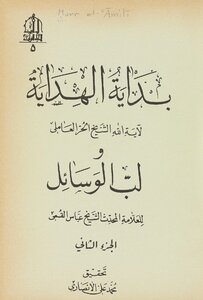 Hurr al-ʿĀmilī
٥
بداية الهداية
لآية الله الشيخ الحر العاملي
و
لب الوسائل
للعلامة المحدث الشيخ عباس القمي
الجزء الثاني
تحقيق
محمد علي الأنصاري